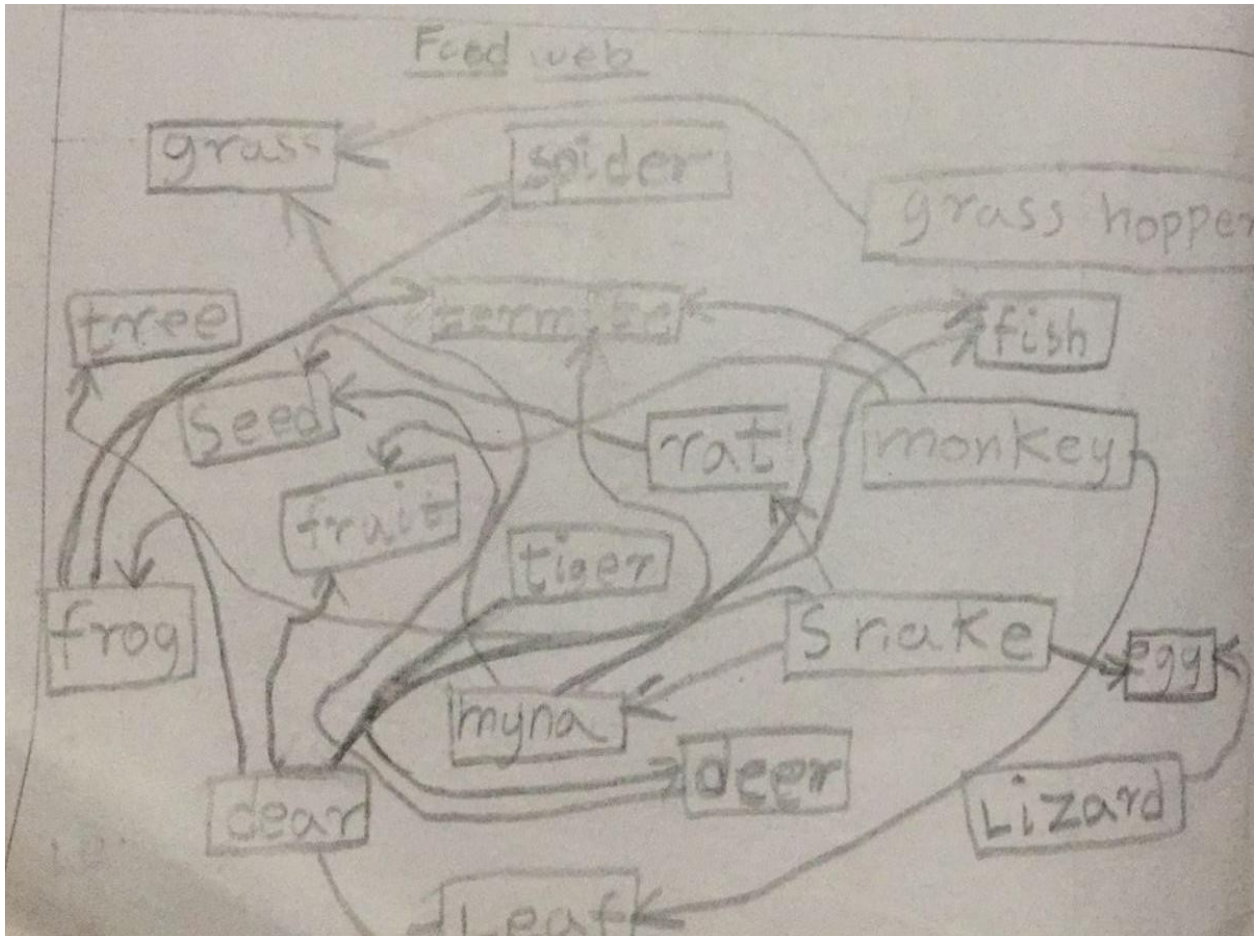 Food web
grass
spider
grass hopper
tree
termite
fish
seed
rat
monkey
fruit
tiger
frog
Snake
egg
myna
deer
Lizard
dear
Leaf